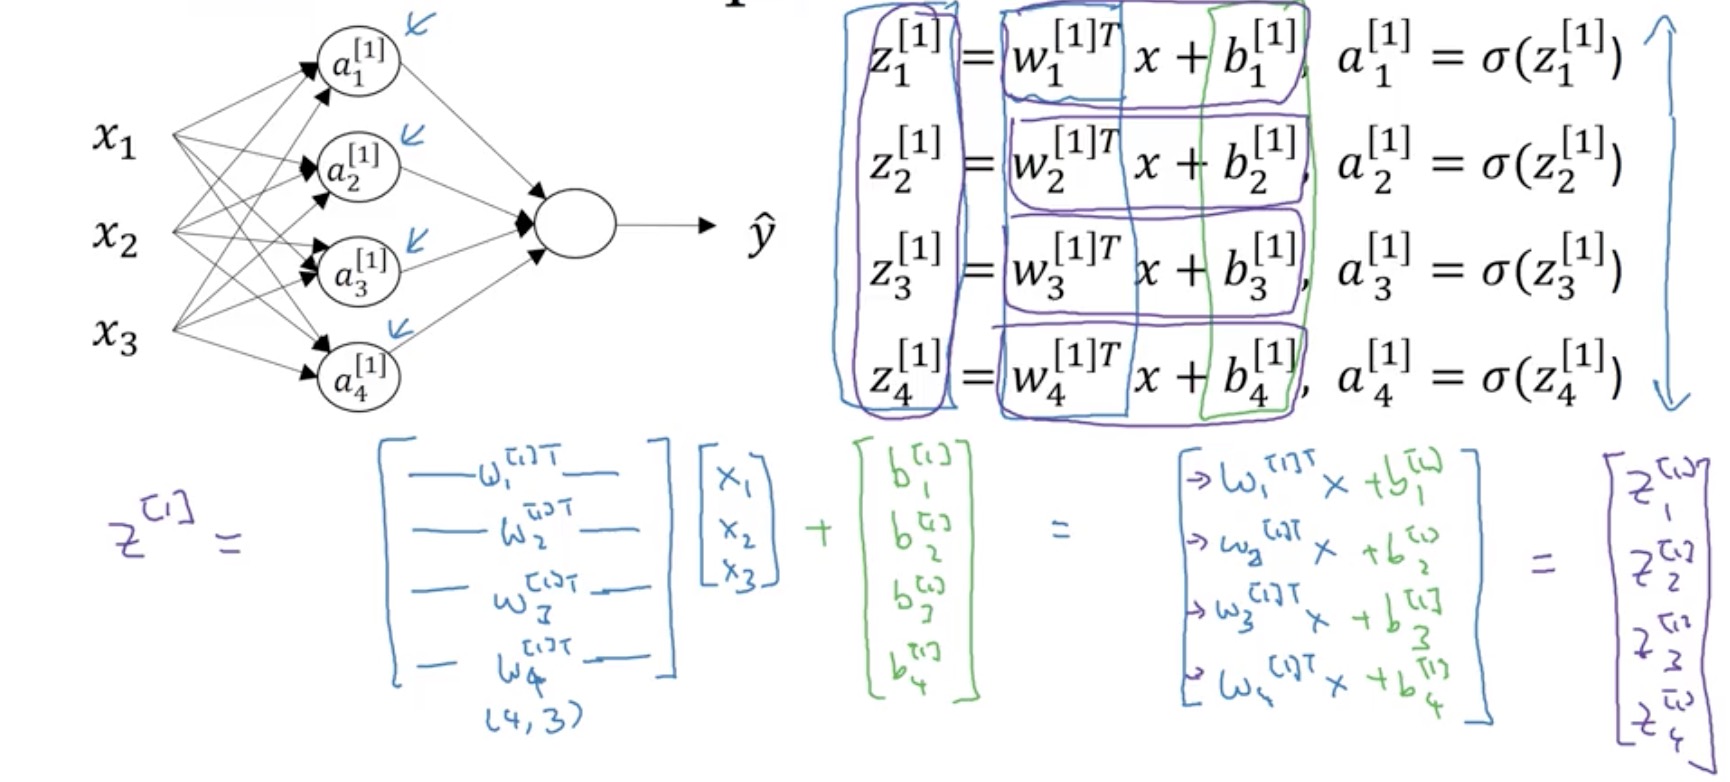 x₁
x₂
x₃
a₁^[1]
a₂^[1]
a₃^[1]
a₄^[1]
ŷ
z₁^[1] = w₁^[1]T x + b₁^[1], a₁^[1] = σ(z₁^[1])
z₂^[1] = w₂^[1]T x + b₂^[1], a₂^[1] = σ(z₂^[1])
z₃^[1] = w₃^[1]T x + b₃^[1], a₃^[1] = σ(z₃^[1])
z₄^[1] = w₄^[1]T x + b₄^[1], a₄^[1] = σ(z₄^[1])
z^[1] =
w₁^[1]T
w₂^[1]T
w₃^[1]T
w₄^[1]T
(4,3)
x₁
x₂
x₃
+
b₁^[1]
b₂^[1]
b₃^[1]
b₄^[1]
=
→ w₁^[1]T x + b₁^[1]
→ w₂^[1]T x + b₂^[1]
→ w₃^[1]T x + b₃^[1]
→ w₄^[1]T x + b₄^[1]
=
z₁^[1]
z₂^[1]
z₃^[1]
z₄^[1]